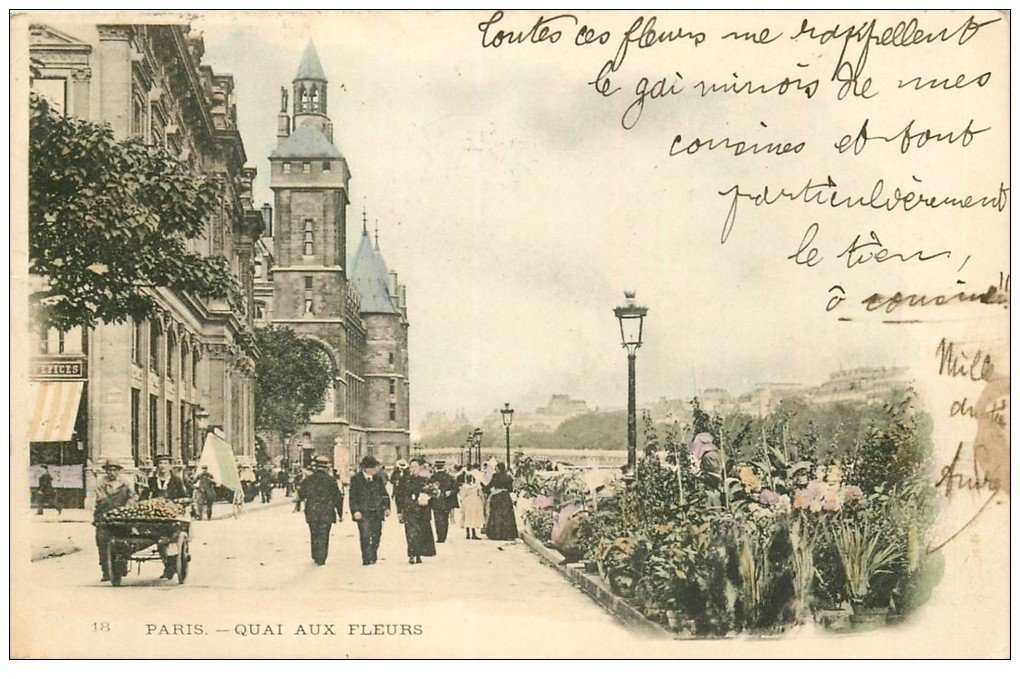 Toutes ces fleurs me rappellent
le gai minois de mes
cousines et tout
particulièrement
le tien,
ô cousine!!
Mill
de
EPICES
18 PARIS. — QUAI AUX FLEURS